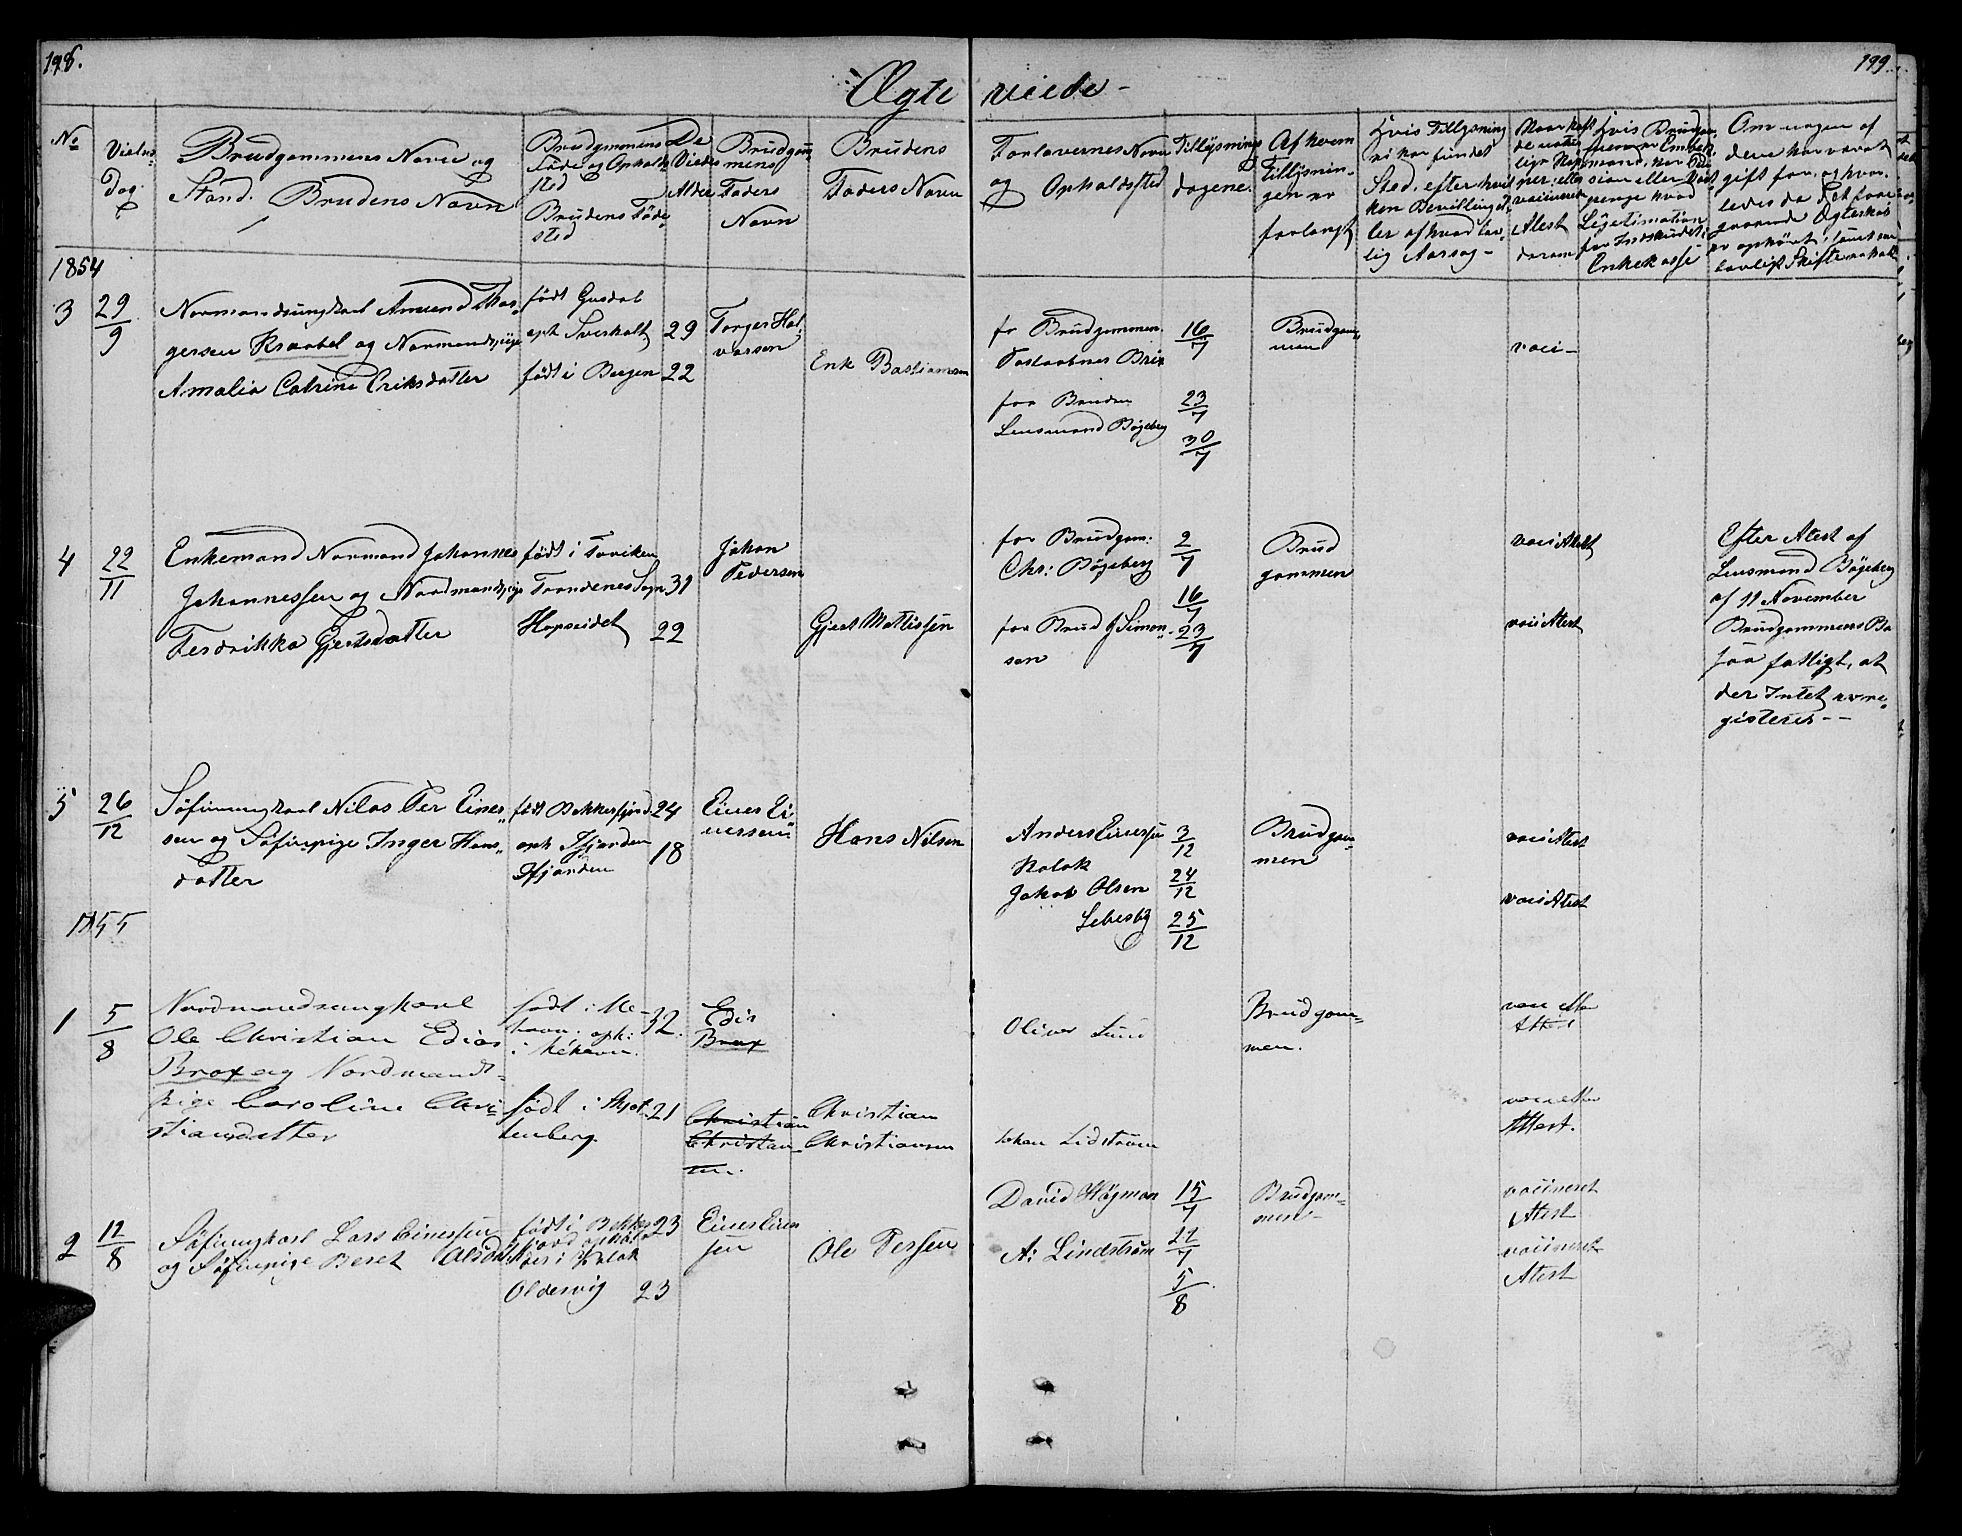 198.
199.
Ægte viede-
No
Vielses
Dag.
Brudgommens Navn og
Stand. Brudens Navn
Brudgommens
Føde og Opholds
sted
Brudens Føde
sted
De
Viedes
Alder
Brudgom
mens
Faders
Navn
Brudens
Faders Navn
Forlovernes Navn
og Opholdssted
Tillysnings
dagene.
Af hvem
Tillysnin-
gen er
forlangt
Hvis Tillysning
ei har fundet
Sted, efter hvil
ken Bevilling el-
ler af hvad lov-
lig Aarsag-
Attest
derom
Hvis Brudgom
Legitimation
for Indskudet i
Enkekasse
Om nogen af
dem har været
gift før, og hvor-
ledes da det fore-
gaaende Ægteskab
er ophørt, samt om
lovligt Skifte er holdt
1854
3
29
9
Normandsungkarl Amund Thor-
gersen Kraabel og Normandspige
Amalia Catrine Eriksdatter
født Gusdal
oph Sverholt
født i Bergen
29
22
Torger Hal-
vorsen
Erik Bastiansen
for Brudgommen
for Bruden
Lensmand Bøgeberg
16
7
23
7
30
7
Brudgom-
men
vaci-
4
22
11
Enkemand Normand Johannes
Johannessen og Nordmandspige
Fredrikka Gjertsdatter
født i
Trondenes Sogn
Hopseidet
31
22
Johan
Pedersen
Gjert Mattissen
for Brudgom:
Chr: Bøgeberg
for Brud J Simon-
sen
2
7
16
7
23
7
Brud
gommen
vaci Atest
vaci Atest
Efter Atest af
Lensmand Bøgeberg
af 11 November
Brudgommens Bo
saa fattigt, at
der Intet
gisteres--
5
26
12
Søfinungkarl Nilas Per Einer-
sen og Søfinpige Inger Hans-
datter
født Bekkerfjord
oph Ifjorden
Ifjorden
24
18
Einer Ei-
nersen
Hans Nilsen
Anders Einersen
Kalak
Jakob Olsen
Lebesby
3
12
24
12
25
12
Brudgom-
men
vaci Atest
vaci Atest
1855
1
5
8
Nordmandsungkarl
Ole Christian Edias
Brox og Nordmands-
pige Caroline Chri-
stiansdatter
født i Me-
havn. oph:
i Mehavn.
født i Skjot-
tenberg.
32.
21
Edis
Brox
Christian
Christian-
sen.
Christian
Christiansen
Oliver Lund
Johan Lidstrøm
Brudgom-
men.
vacc efter
Attest
vacc efter
Attest.
2
12
8
Søfinungkarl Lars Einersen
og Søfinpige Beret Olsdat:
født i Bekker
fjord opholds
i Kalak
Oldervig
23
23
Einer Einer
sen
Ole Persen
David Høgman
A: Lindstrøm
15
7
22
7
5
8
Brudgom-
men-
vaciineret
Atest
vaciineret
Atest